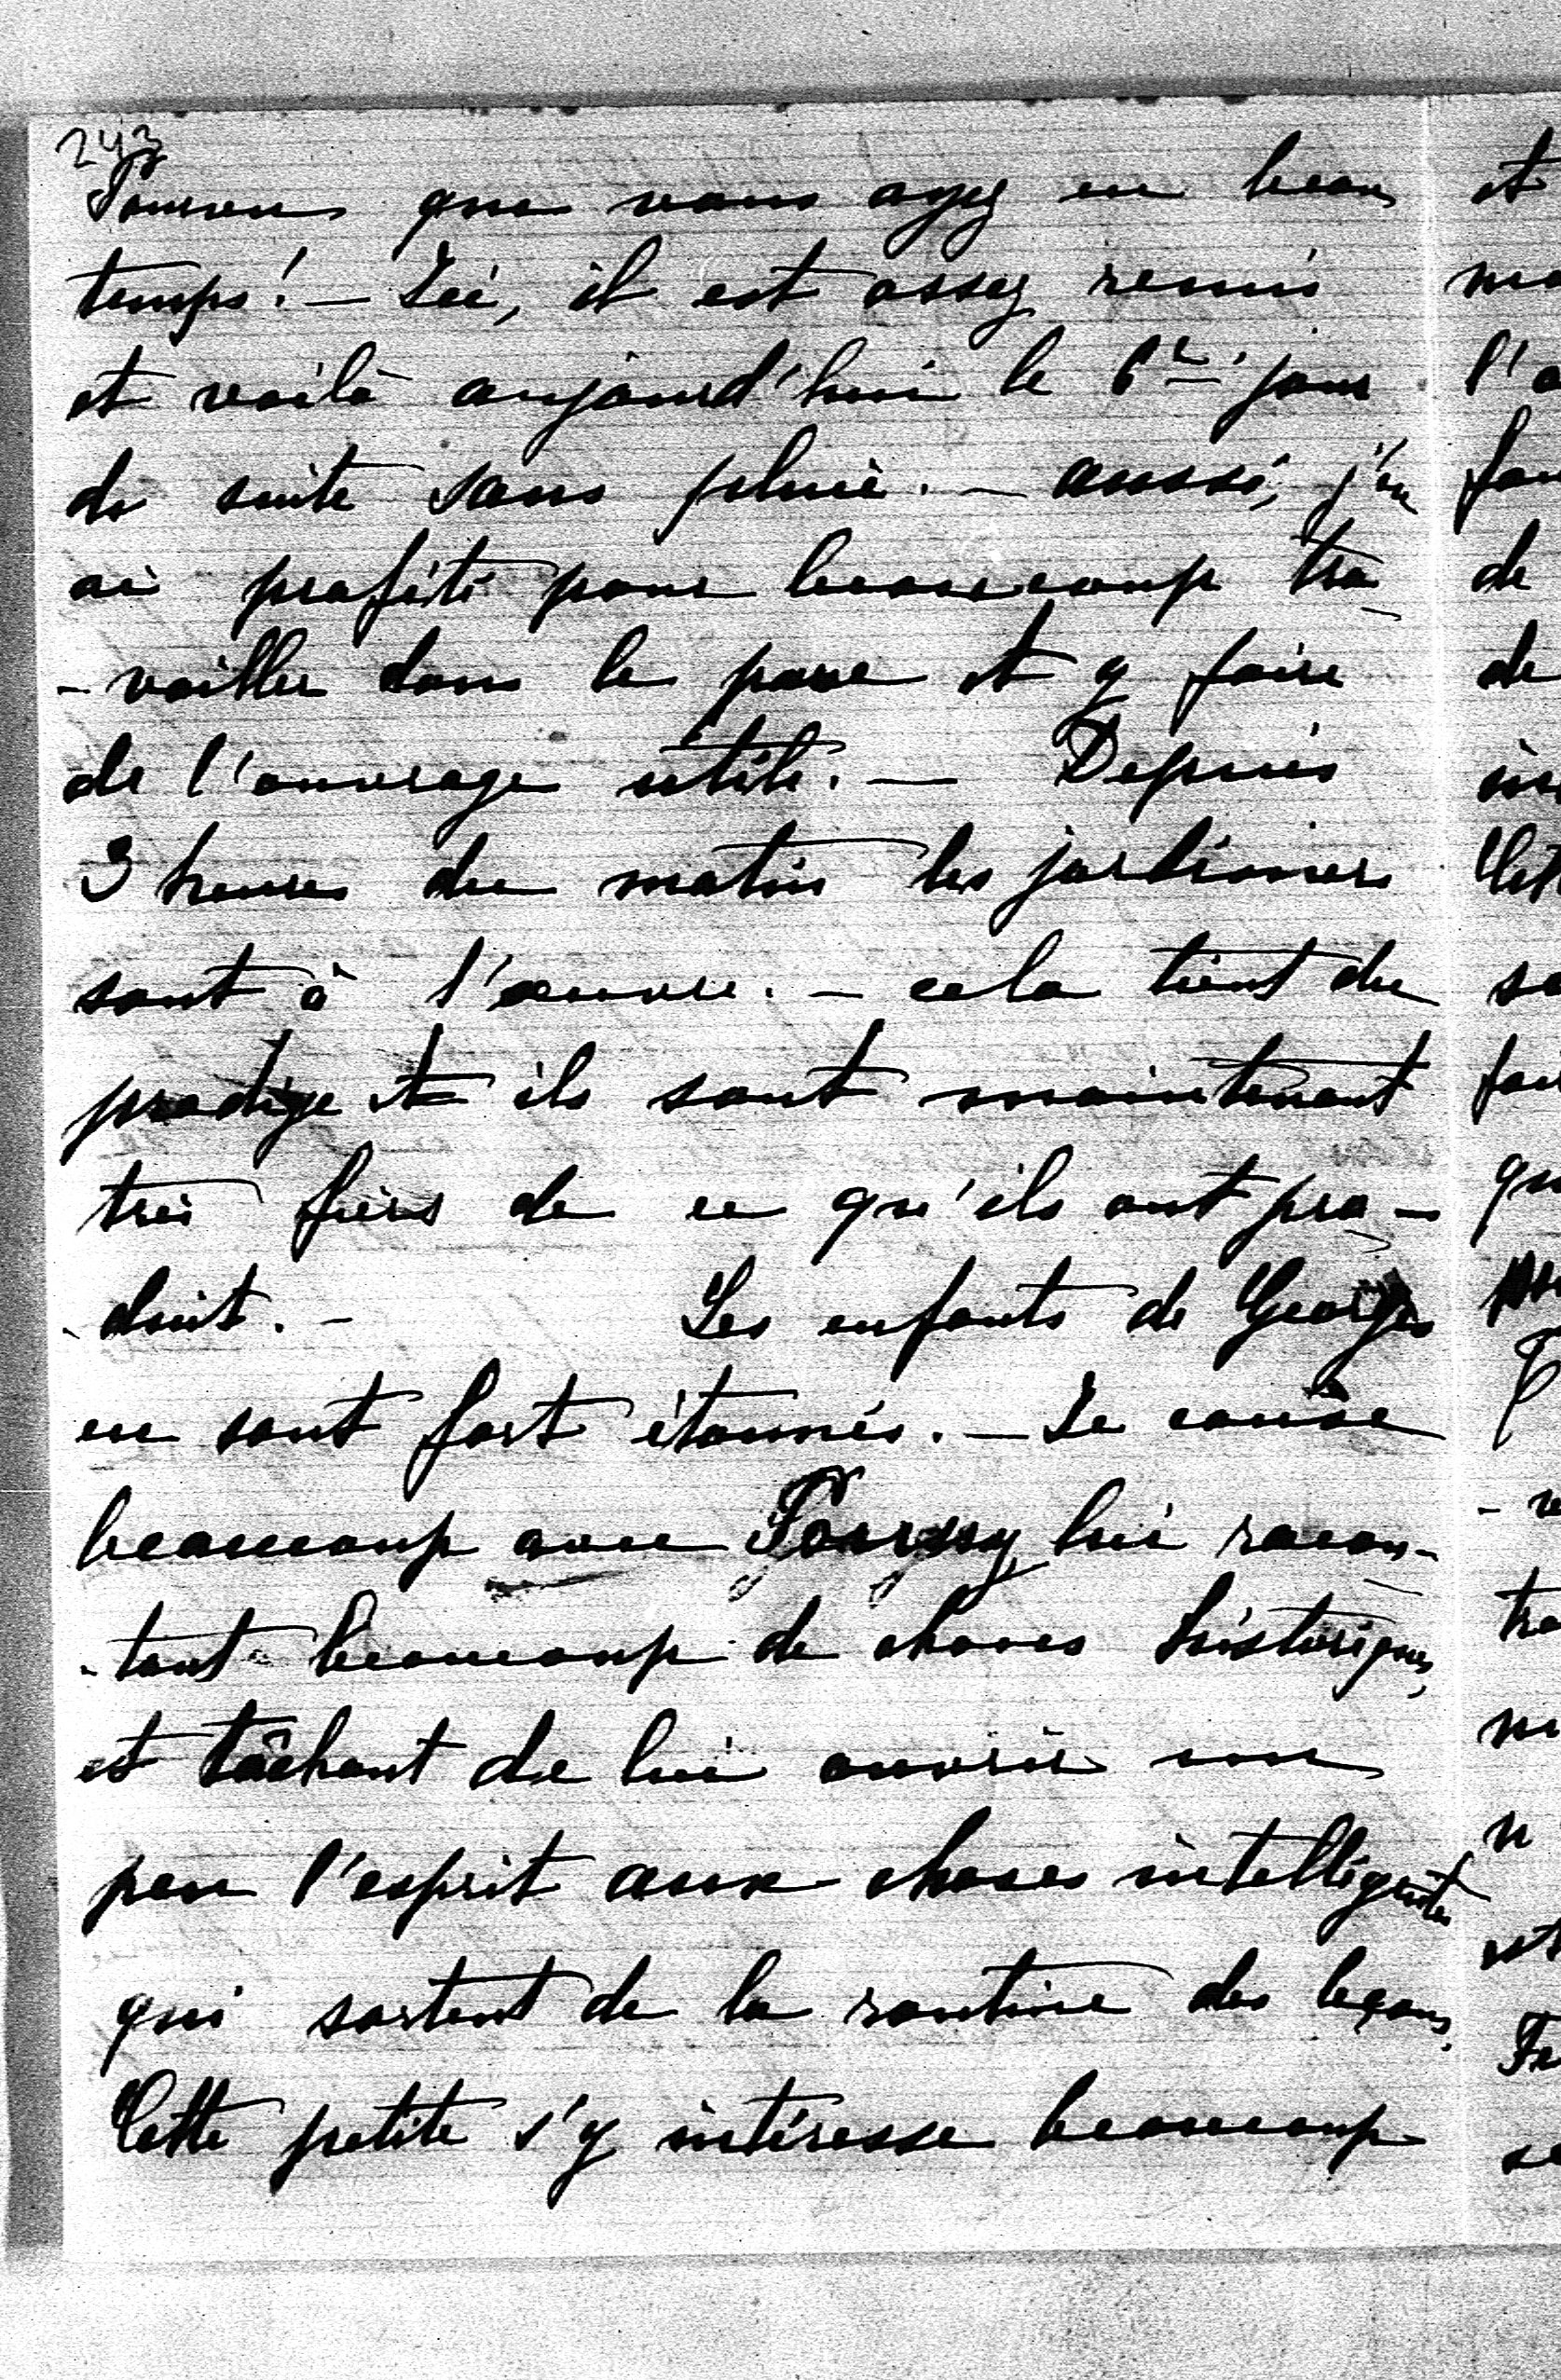 243
Pourvu que vous ayez eu beau
temps! — Ici, il est assez remis
et voilà aujourd'hui le 6e jour
de suite sans pluie. — aussi, j'en
ai profité pour beaucoup tra
-vailler dans le parc et y faire
de l'ouvrage utile. — Depuis
3 heures du matin les jardiniers
sont à l'œuvre. — cela tient du
prodige et ils sont maintenant
très fiers de ce qu'ils ont pro-
-duit. — Les enfants de Georges
en sont fort étonnés. — Je cause
beaucoup avec lui racon-
-tant beaucoup de choses historiques,
et tâchant de lui ouvrir un
peu l'esprit aux choses intelligentes
qui sortent de la routine des leçons.
Cette petite s'y intéresse beaucoup